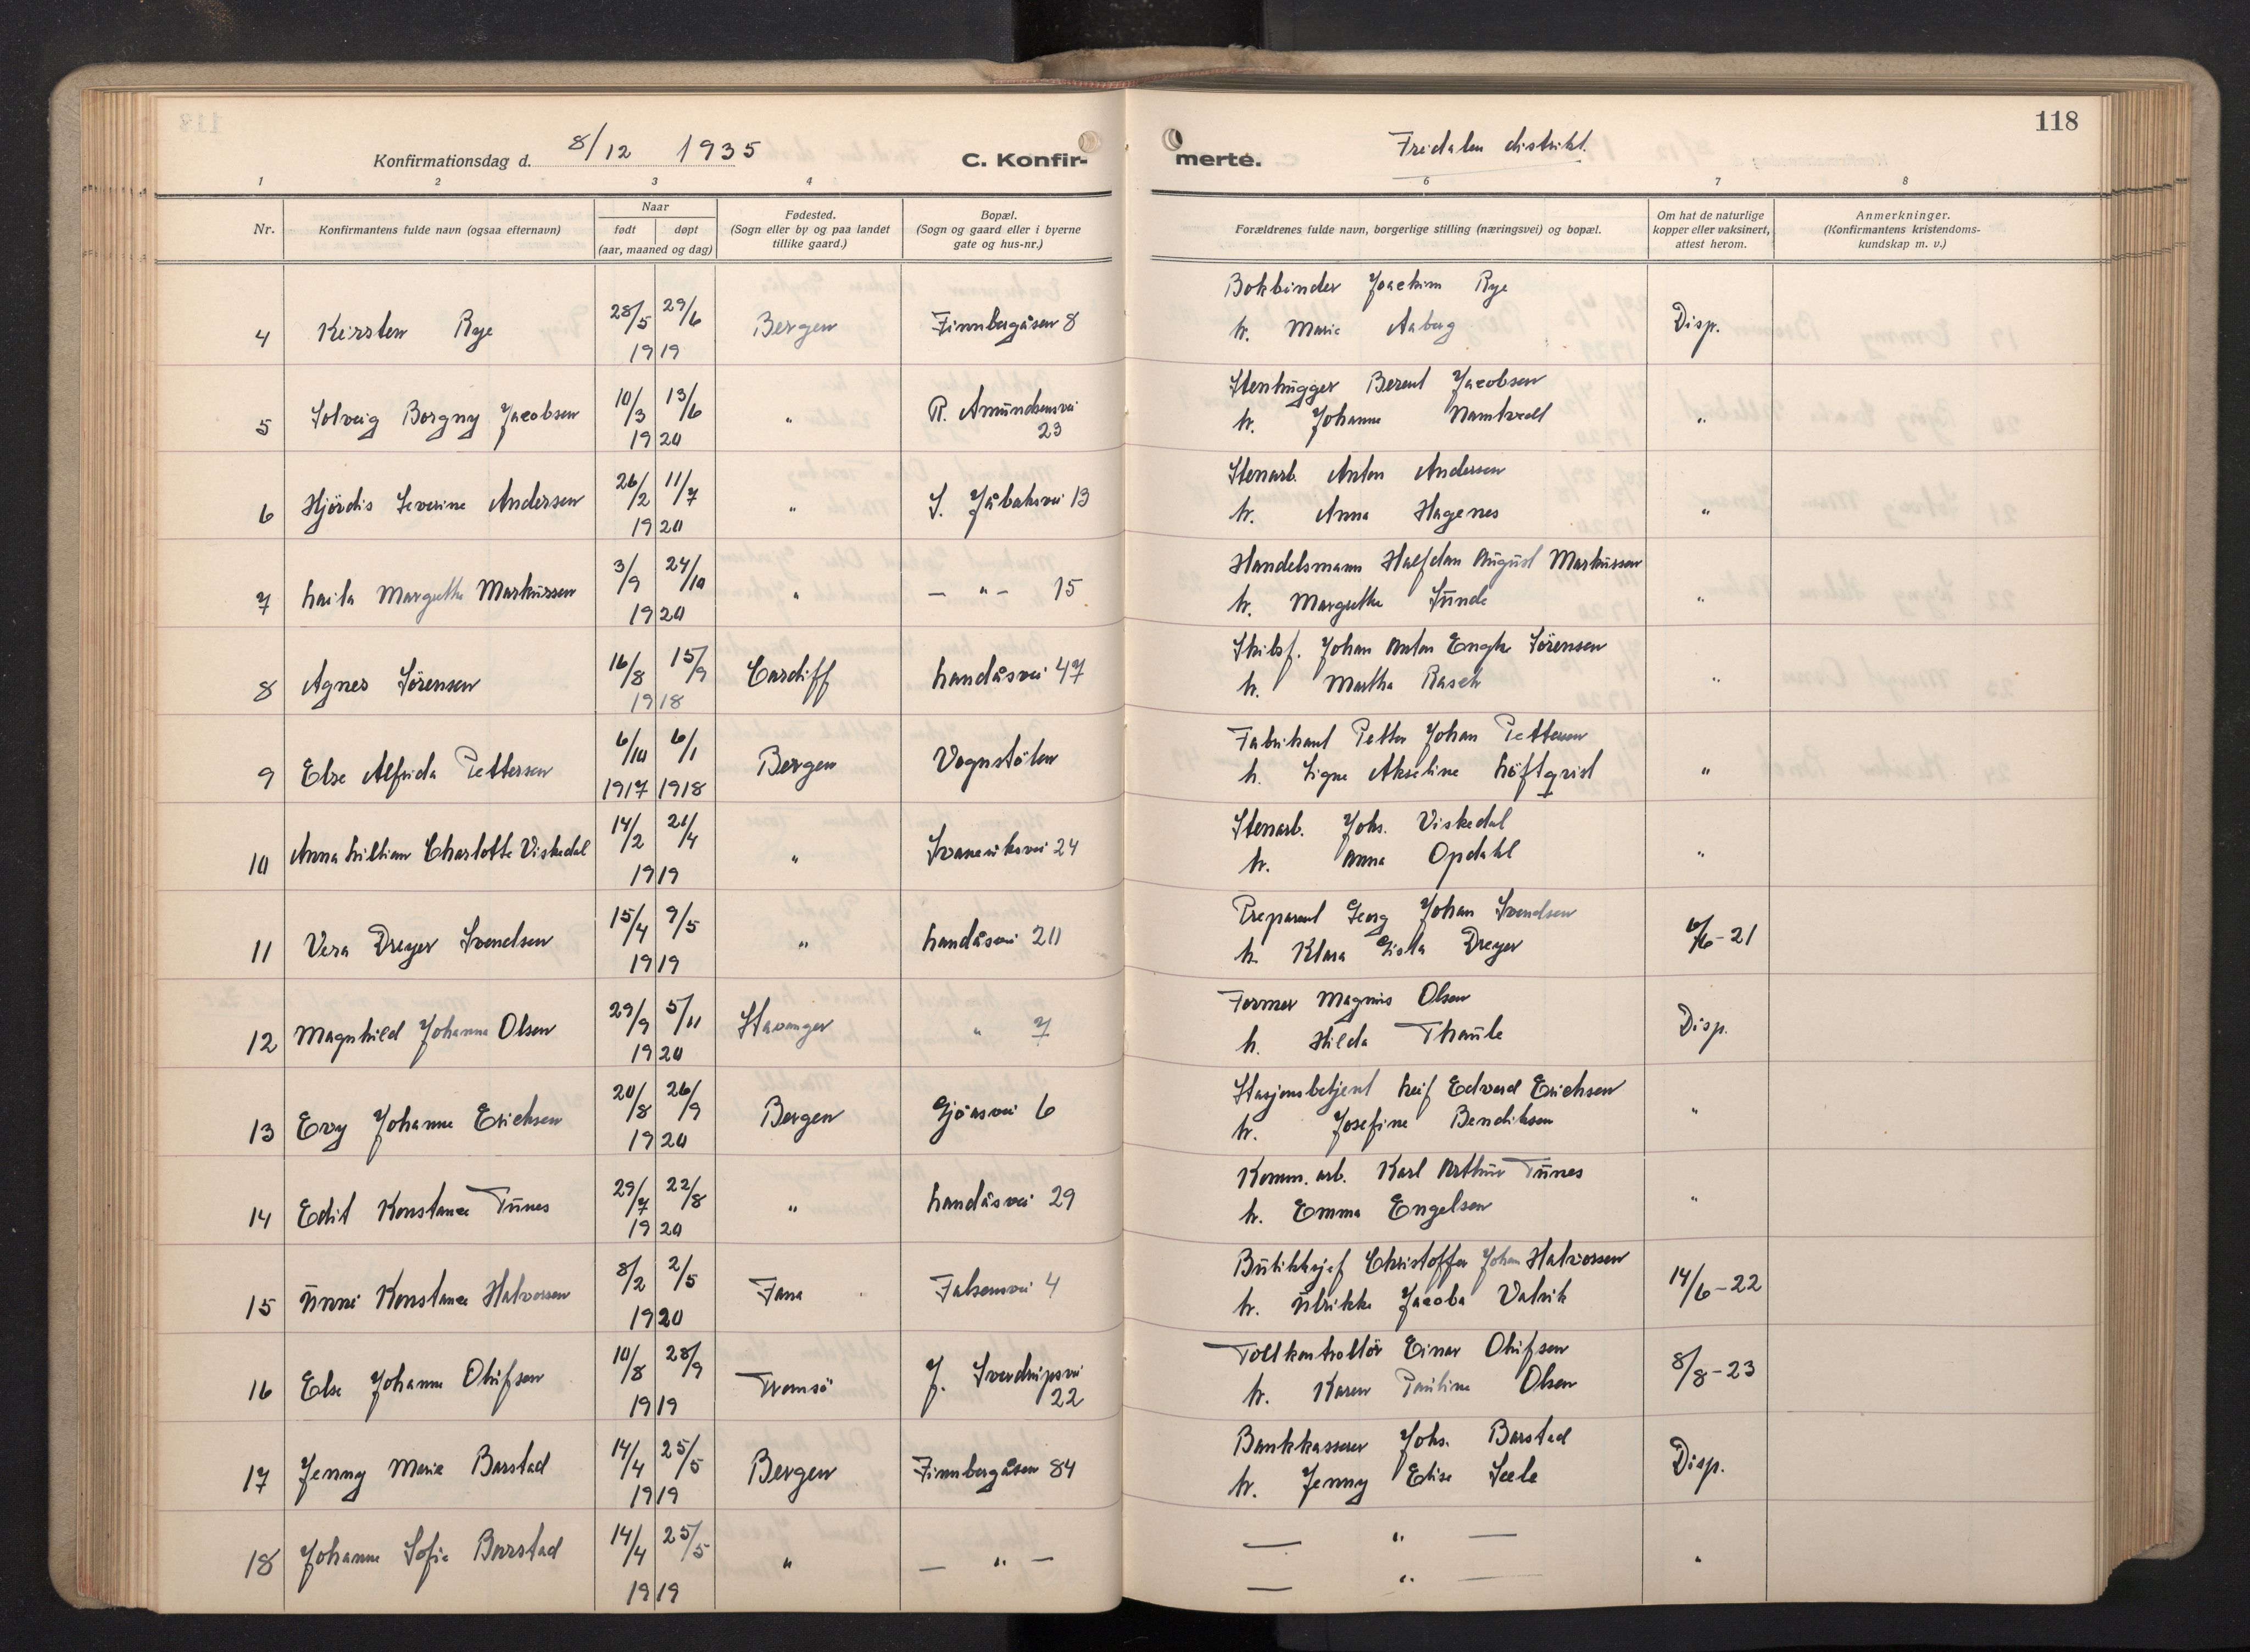 118
Konfirmationsdag d. 8/12 1935
C. Konfir-
merte.
Fridalen distrikt.
1 2 3 4 6 7 8
Nr.
Konfirmantens fulde navn (ogsaa efternavn)
Naar
født døpt
(aar, maaned og dag)
Fødested.
(Sogn eller by og paa landet
tillike gaard.)
Bopæl.
(Sogn og gaard eller i byerne
gate og hus-nr.)
Forældrenes fulde navn, borgerlige stilling (næringsvei) og bopæl.
Om hat de naturlige
kopper eller vaksinert,
attest herom.
Anmerkninger.
(Konfirmantens kristendoms-
kundskap m. v.)
Bokbinder Joachim Rye
4 Kirsten Rye 28/5 29/6 Bergen Finnbergåsen 8 h. Marie Aaberg Disp.
1919
Stenhugger Berent Jacobsen
5 Solveig Borgny Jacobsen 10/3 13/6 " R. Amundsensvei h. Johanne Namtvedt "
1920 23
Stenarb. Anton Andersen
6 Hjördis Severine Andersen 26/2 11/7 " S. Jåbaksvei 13 h. Anna Hagenes "
1920
Handelsmann Halfdan August Markussen
7 Laila Margrethe Markussen 3/9 24/10 " — " — 15 h. Margrethe Sunde "
1920
Skibsf. Johan Anton Engh Sörensen
8 Agnes Sörensen 16/8 15/9 Cardiff Landåsvei 47 h. Martha Rasch "
1918
Fabrikant Petter Johan Pettersen
9 Else Alfrida Pettersen 6/10 6/1 Bergen Vognstölen h. Signe Akseline Löftqvist "
1917 1918
Stenarb. Johs. Viskedal
10 Anna Lillian Charlotte Viskedal 14/2 21/4 " 24 h. Anna Opdahl "
1919
Preparant Georg Johan Svendsen
11 Vera Dreyer Svendsen 15/4 9/5 " Landåsvei 20 h. Klara Gisla Dreyer 6/6-21
1919
Former Magnus Olsen
12 Magnhild Johanne Olsen 29/9 5/11 Stavanger " 7 h. Hilda Thaule Disp.
1920
Stasjonsbetjent Leif Edvard Erichsen
13 Evy Johanne Erichsen 20/8 26/9 Bergen Gjöasvei 6 h. Josefine Bendiksen "
1920
Komm. arb. Karl Arthur Tunes
14 Edit Konstance Tunes 29/7 22/8 " Landåsvei 29 h. Emma Engelsen "
1920
Butikksjef Christoffer Johan Halvorsen
15 Unni Konstance Halvorsen 8/2 2/5 Fana Falsensvei 4 h. Ulrikke Jacoba Valvik 14/6-22
1920
Tollkontrollör Einar Olufsen
16 Else Johanne Olufsen 10/8 28/9 Tromsö J. Sverdrupsvei h. Karen Pauline Olsen 8/8-23
1919 22
Bankkasserer Johs. Barstad
17 Jenny Marie Barstad 14/4 25/5 Bergen Finnbergåsen 84 h. Jenny Elise Seele Disp.
1919
— " —
18 Johanne Sofie Barstad 14/4 25/5 " — " — — " — "
1919